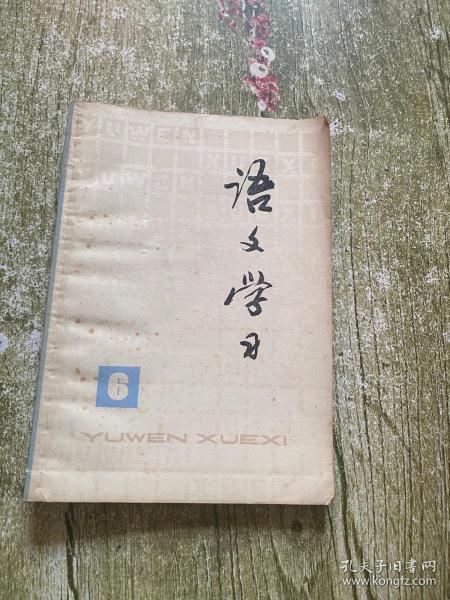 YUWEN
XUEXI
YUWEN
语文学习
6
YUWEN XUEXI
孔夫子旧书网
www.kongfz.com